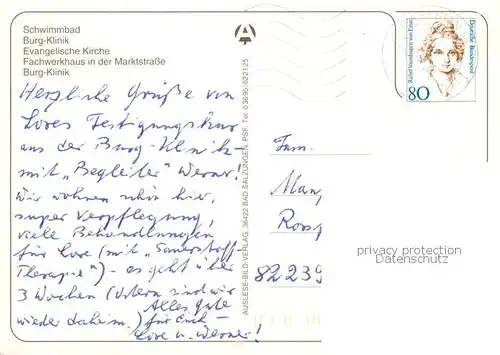 Schwimmbad
Burg-Klinik
Evangelische Kirche
Fachwerkhaus in der Marktstraße
Burg-Klinik
Herzliche Grüße von
Lores Festigungskur
aus der Burg-Klinik
mit „Begleiter" Werner!
Wir wohnen schön hier,
super Verpflegung,
viele Behandlungen
für Lore (mit „Sauerstoff-
Therapie") - es geht über
3 Wochen (Ostern sind wir
wieder daheim.)
Alles Gute
für Euch -
Lore u. Werner!
AUSLESE-BILD-VERLAG, 36422 BAD SALZUNGEN, PSF, Tel. 03695/622125
Rahel Varnhagen von Ense
Deutsche Bundespost
80
Fam.
82239
privacy protection
Datenschutz